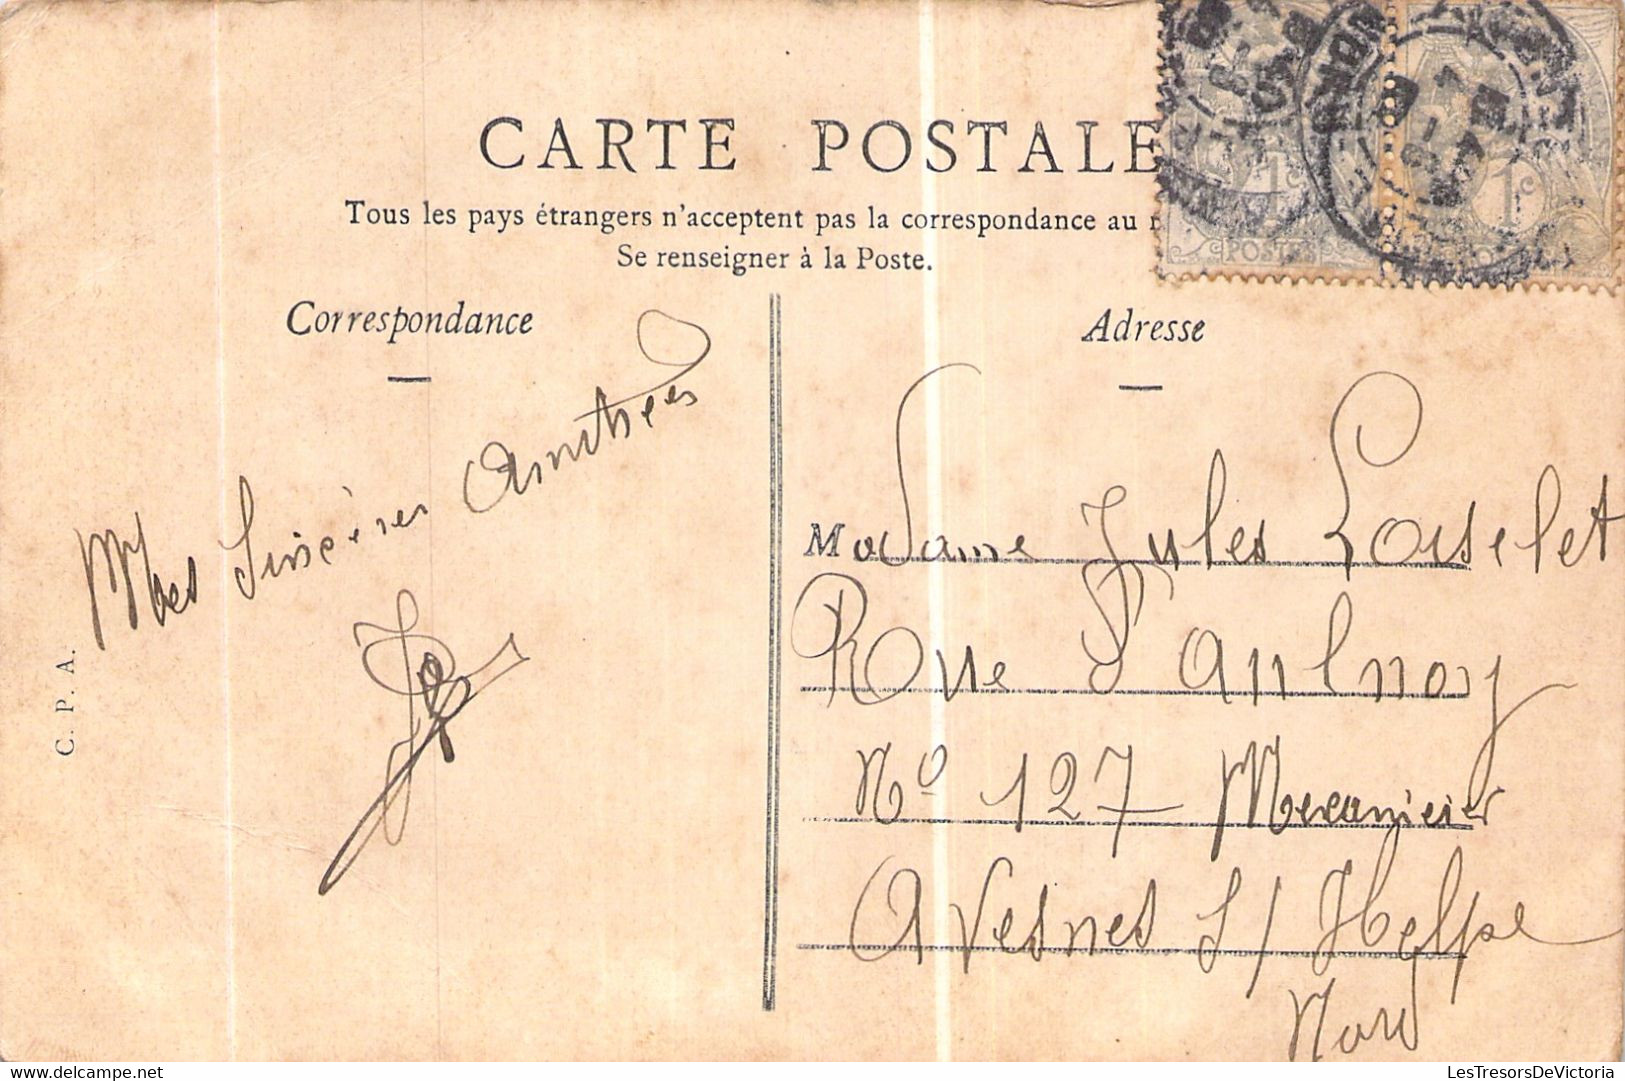 CARTE POSTALE
Tous les pays étrangers n'acceptent pas la correspondance au
Se renseigner à la Poste.
Correspondance
Adresse
Mes Sincères Amitiées
C. P. A.
Madame Jules Loiselet
Rue D'aulnoy
No 127 Mecanicier
Avesnes S/ Helpe
Nord
1c
POSTES
1c
LesTresorsDeVictoria